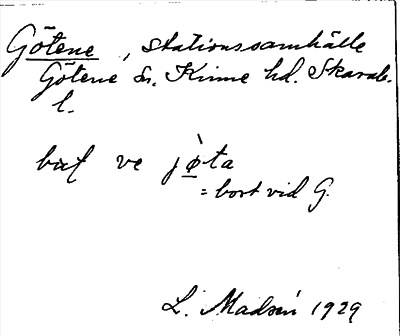 Götene, stationssamhälle
Götene sn. Kinne hd. Skarab.
l.
ve jø̀ta
= bort vid G.
L. Madsén 1929